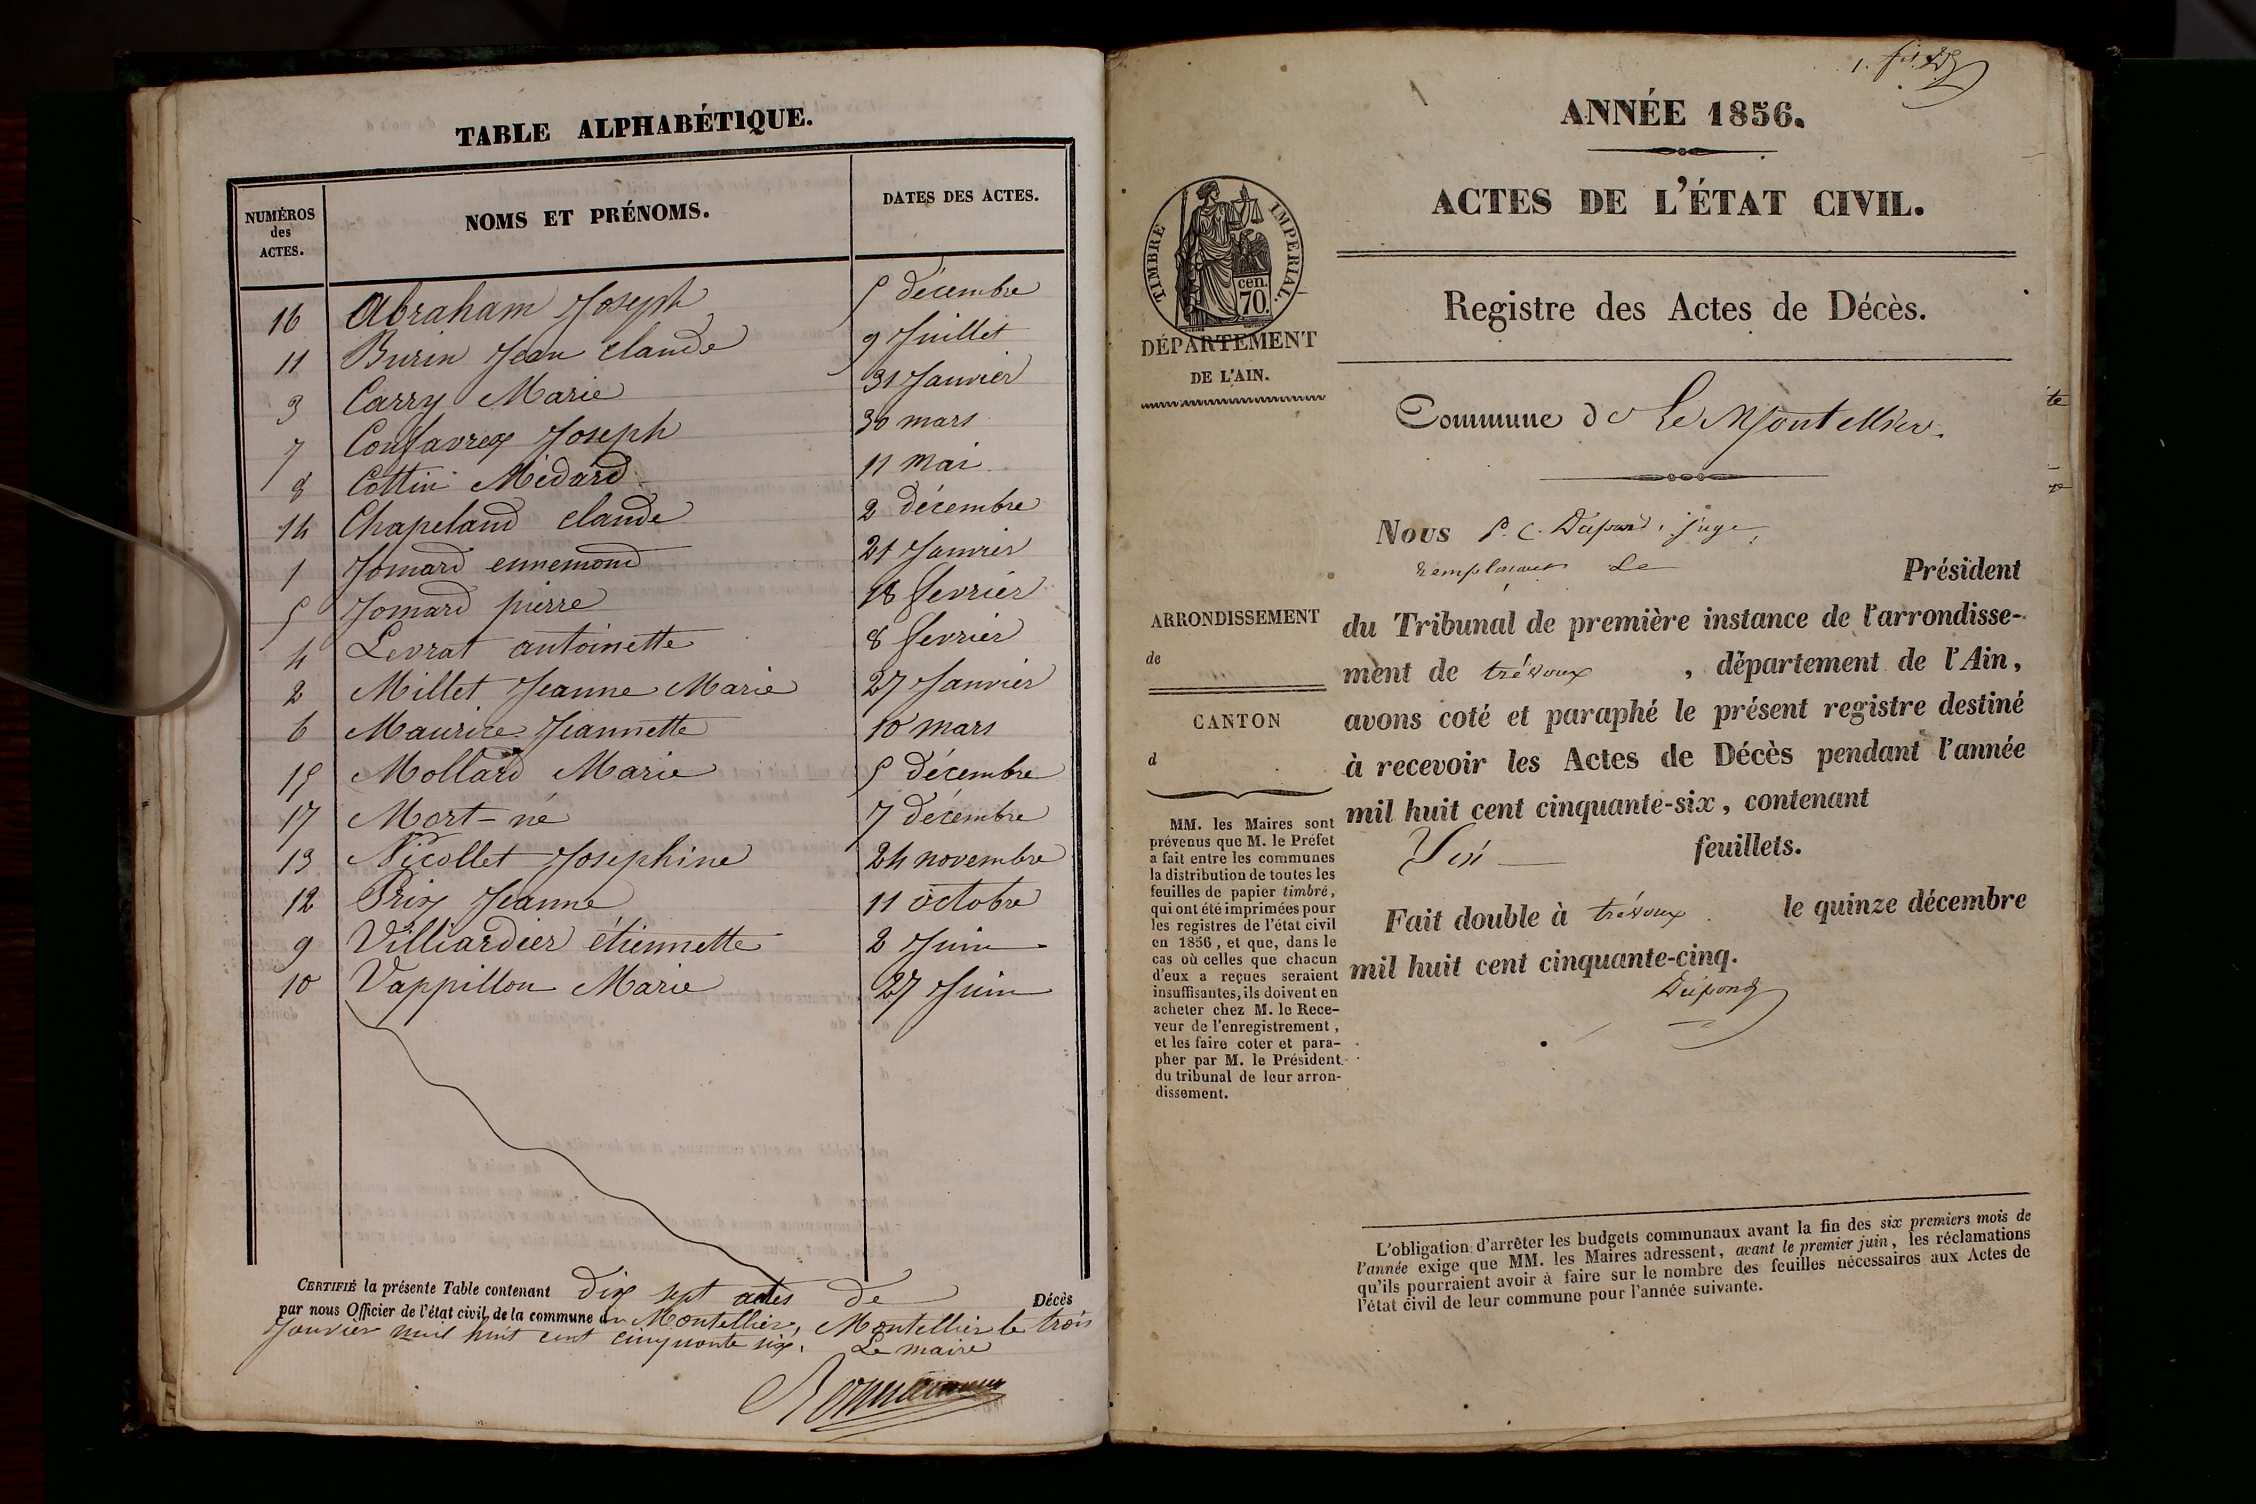 TABLE ALPHABÉTIQUE.
NUMÉROS des ACTES. NOMS ET PRÉNOMS. DATES DES ACTES.
16 Abraham Joseph 5 décembre
11 Burin Jean claude 9 Juillet
3 Carry Marie 31 Janvier
7 Confavreux Joseph 30 mars
8 Cottin Médard 11 mai
14 Chapeland claude 2 décembre
1 Jomard ennemond 21 Janvier
5 Jomard pierre 18 fevrier
4 Levrat antoinette 8 fevrier
2 Millet Jeanne Marie 27 Janvier
6 Maurice Jeannette 10 mars
15 Mollard Marie 5 décembre
17 Mort-né 7 décembre
13 Nicollet Josephine 24 novembre
12 Prix Jeanne 11 octobre
9 Villiardier étiennette 2 Juin
10 Vappillon Marie 27 Juin
CERTIFIÉ la présente Table contenant Dix sept actes de Décès
par nous Officier de l'état civil de la commune du Montellier, Montellier le trois
Janvier mil huit cent cinquante six. Le maire
1.
ANNÉE 1856.
ACTES DE L'ÉTAT CIVIL.
TIMBRE IMPERIAL.
cen.
70.
DÉPARTEMENT
DE L'AIN.
Registre des Actes de Décès.
Commune de Le Montellier.
Nous P. C. Dupond, juge,
remplaçant Le Président
du Tribunal de première instance de l'arrondisse-
ment de trévoux, département de l'Ain,
avons coté et paraphé le présent registre destiné
à recevoir les Actes de Décès pendant l'année
mil huit cent cinquante-six, contenant
feuillets.
Fait double à trévoux. le quinze décembre
mil huit cent cinquante-cinq.
Dupond
ARRONDISSEMENT
de
CANTON
d
MM. les Maires sont
prévenus que M. le Préfet
a fait entre les communes
la distribution de toutes les
feuilles de papier timbré,
qui ont été imprimées pour
les registres de l'état civil
en 1856, et que, dans le
cas où celles que chacun
d'eux a reçues seraient
insuffisantes, ils doivent en
acheter chez M. le Rece-
veur de l'enregistrement,
et les faire coter et para-
pher par M. le Président
du tribunal de leur arron-
dissement.
L'obligation d'arrêter les budgets communaux avant la fin des six premiers mois de
l'année exige que MM. les Maires adressent, avant le premier juin, les réclamations
qu'ils pourraient avoir à faire sur le nombre des feuilles nécessaires aux Actes de
l'état civil de leur commune pour l'année suivante.